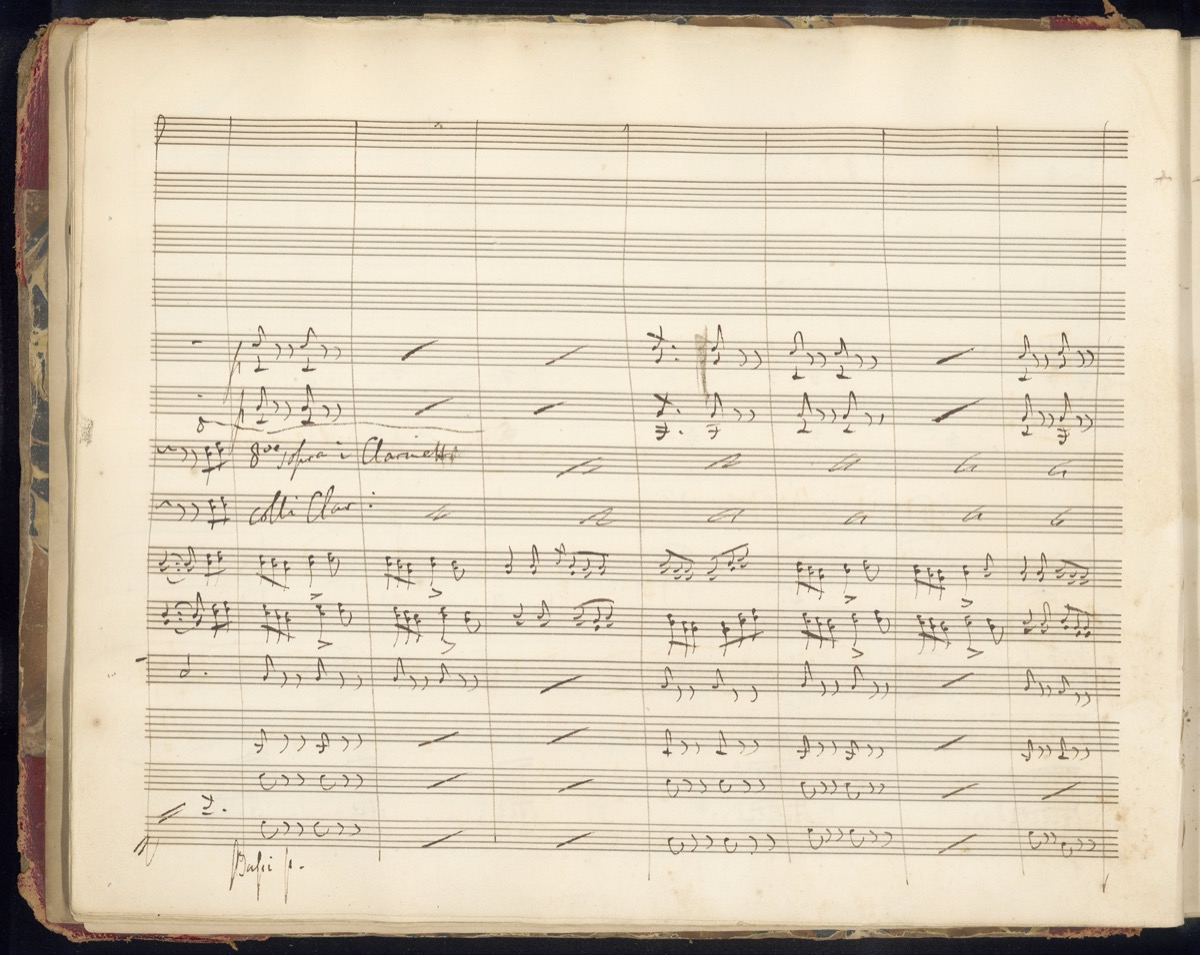 8ve sopra i Clarinetti
colli Clar:
Bassi p.